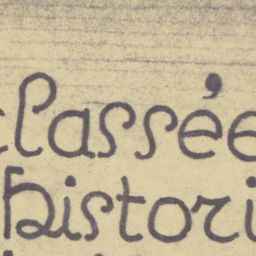 classée
histori